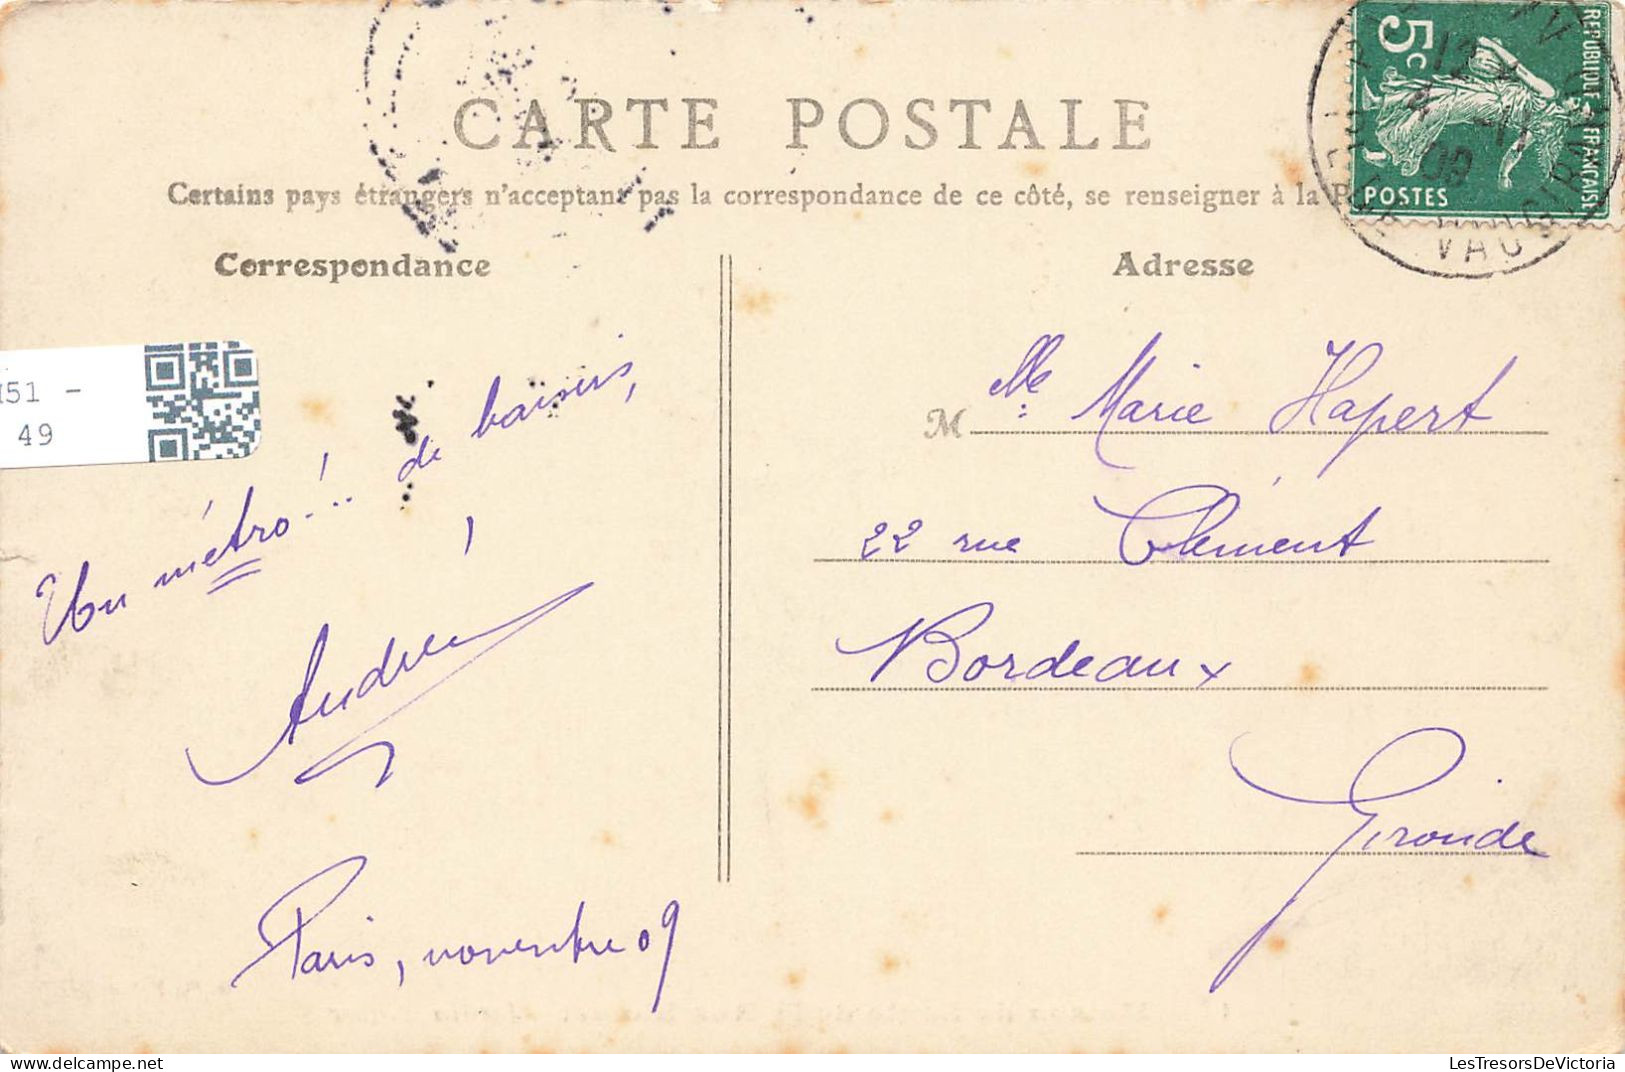 CARTE POSTALE
Certains pays étrangers n'acceptant pas la correspondance de ce côté, se renseigner à la
Correspondance
Adresse
5c
REPUBLIQUE FRANÇAISE
POSTES
12
11
09
VAUGIRARD
51 -
49
Un métro!.. de baisers,
Andrée
Paris, novembre 09
M
Mlle Marie Hapert
22 rue Clément
Bordeaux
Gironde
LesTresorsDeVictoria